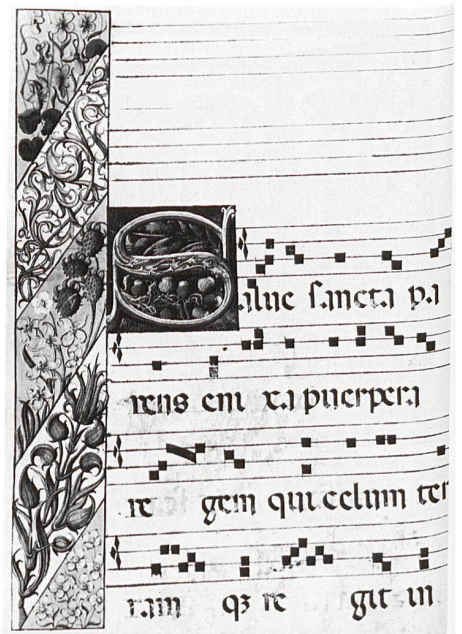 Salue sancta pa
rens eni xa puerpera
re gem qui celum ter
ram qz re git in